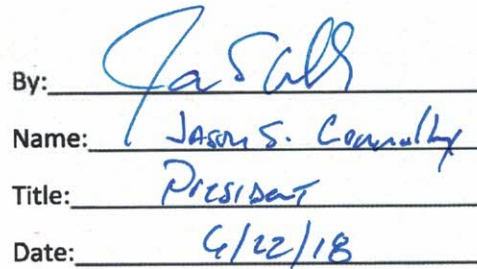 By:
Name: Jason S. Connolly
Title: President
Date: 6/22/18